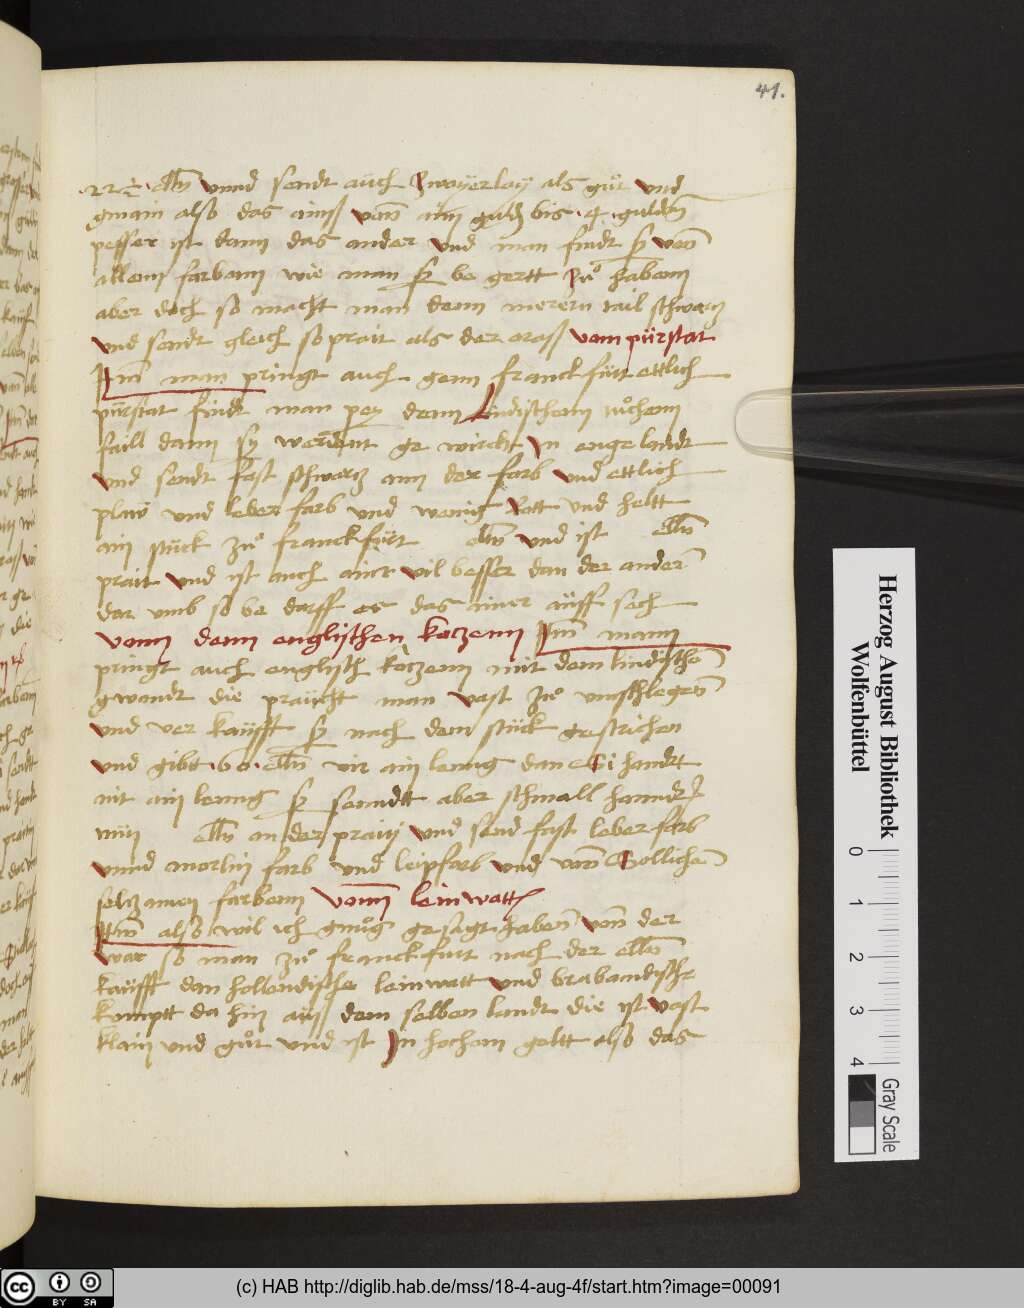 41.
.22½. elln̄ vnnd sendt auch zwayerlay als gu̇t vnd
gmain also das ainß vm̄ ain guld bis .4. gulden
pesser ist dann das ander vnd man findt sy von̄
allem farbann wie man sy be gertt zuͦ habenn
aber doch so macht man denn merern tail schwarz
vnd sendt gleich so prait als der araß vom pürstat
Itm̄ man pringt auch genn franckfürt ettlich
pürstat findt man pey denn Lindischenn tuͦchenn
faill dann sy werdent ge wirckt Jn enge landt
vnd sendt fast schwarz ann der farb vnd ettlich
plaw vnd leber farb vnd wenig Rott vnd heltt
ain stück zuͦ franckfürt elln̄ vnd ist elln̄
prait vnd ist auch ainer vil besser dan der ander
dar vmb so be darff es das ainer auff sech
vonn denn englischen kotzenn Itm̄ mann
pringt auch englisch kotzenn mit dem lindischē
gwandt die praucht man vast zuͦ vmschlegen̄
vnd ver kaufft sy nach dem stück gestrichen
vnd gibt .60. elln̄ vir ain leung dan Si handt
nit ain leung sy senndtt aber schmall hanndt
nun elln̄ an der praitt vnd send fast leberfarb
vnnd morlin farb vnd leipfarb vnd von̄ Sollichē
seltzamen farbenn vonn leinwatt
Itm̄ also wil ich gnuͦg gesagt haben̄ von̄ der
war so man zuͦ franckfurt nach der elln̄
kaufft dan hollendische leinwatt vnd brabandische
kumptt da hin auß dem selben landt die ist vast
klain vnd guͦt vnd ist Jn hochem geltt also das
Herzog August Bibliothek
Wolfenbüttel
0 1 2 3 4
Gray Scale
cc BY SA
(c) HAB http://diglib.hab.de/mss/18-4-aug-4f/start.htm?image=00091